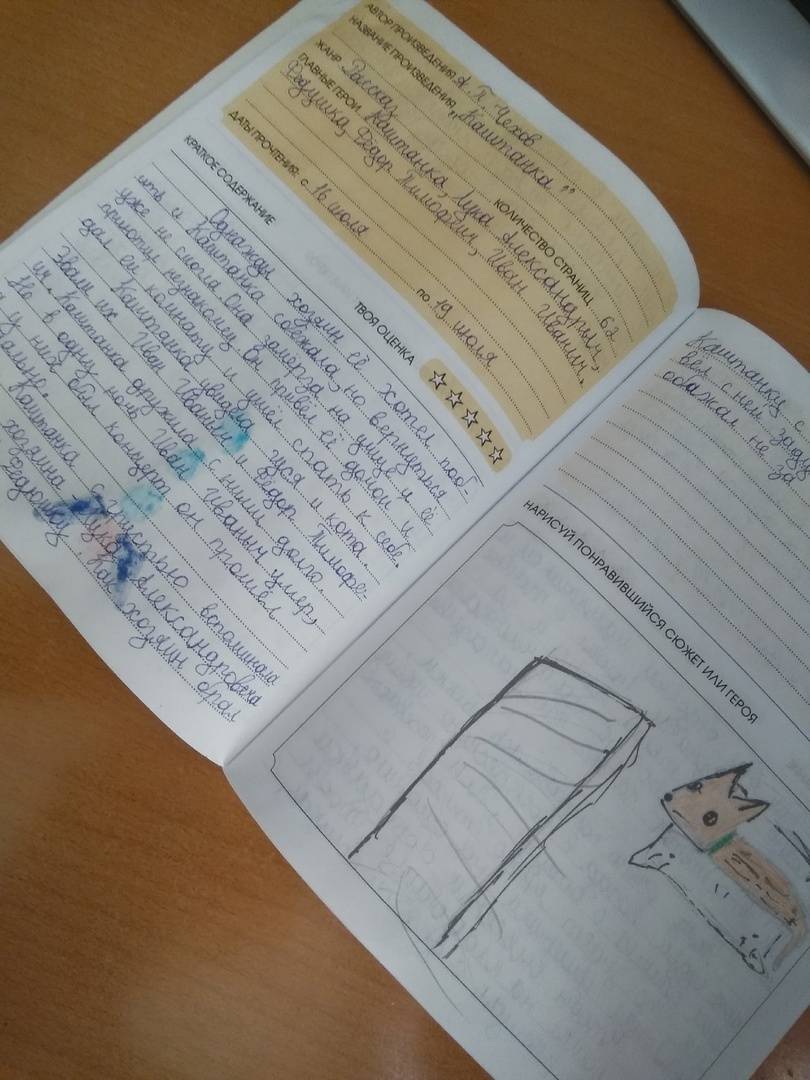 АВТОР ПРОИЗВЕДЕНИЯ А. П. Чехов
НАЗВАНИЕ ПРОИЗВЕДЕНИЯ „Каштанка"
ЖАНР Рассказ КОЛИЧЕСТВО СТРАНИЦ 62
ГЛАВНЫЕ ГЕРОИ Каштанка, Лука Александрыч,
Федушка, Фёдор Тимофеич, Иван Иванич.
ДАТЫ ПРОЧТЕНИЯ: с 16 июля по 19 июля
ТВОЯ ОЦЕНКА
КРАТКОЕ СОДЕРЖАНИЕ
Однажды хозяин её хотел
ить и Каштанка сбежала, но вернуться
уже не смогла. Она замерзла на улице и её
приютил незнакомец. Он привёл её домой и
дал ей комнату и ушёл спать к себе.
Каштанка увидела гуся и кота.
Звали их Иван Иваныч и Фёдор Тимофе-
ич. Каштанка дружила с ними долго.
Но в одну ночь Иван Иваныч умер,
а у них был концерт он прошёл
Каштанка с вспоминала
хозяина Лука Александровича
Федюшку. Как хозяин брал
Каштанку с
вел с ней
обажал не за
НАРИСУЙ ПОНРАВИВШИЙСЯ СЮЖЕТ ИЛИ ГЕРОЯ